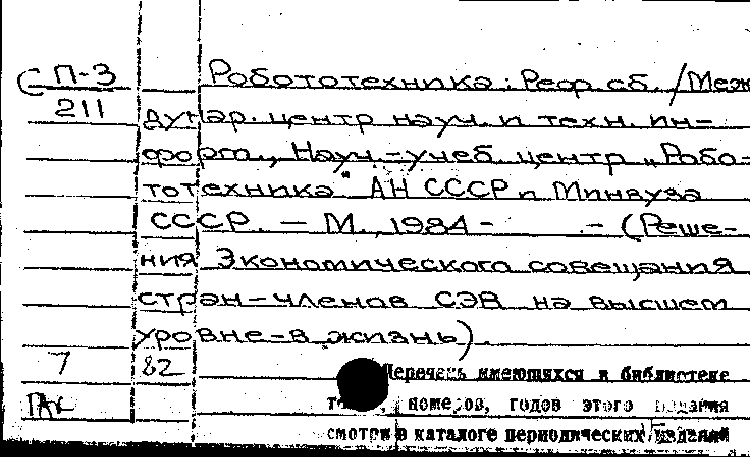 СП-3 Робототехника: Реф. сб. /Меж
211 дунар. центр науч. и техн. ин-
форм., Науч.-учеб. центр „Робо-
тотехника" АН СССР и Минвуза
СССР. – М., 1984 - . – (Реше-
ния Экономического совещания
стран-членов СЭВ на высшем
уровне-в жизнь).
7 82 Перечень имеющихся в библиотеке
номеров, годов этого издания
смотри в каталоге периодических изданий